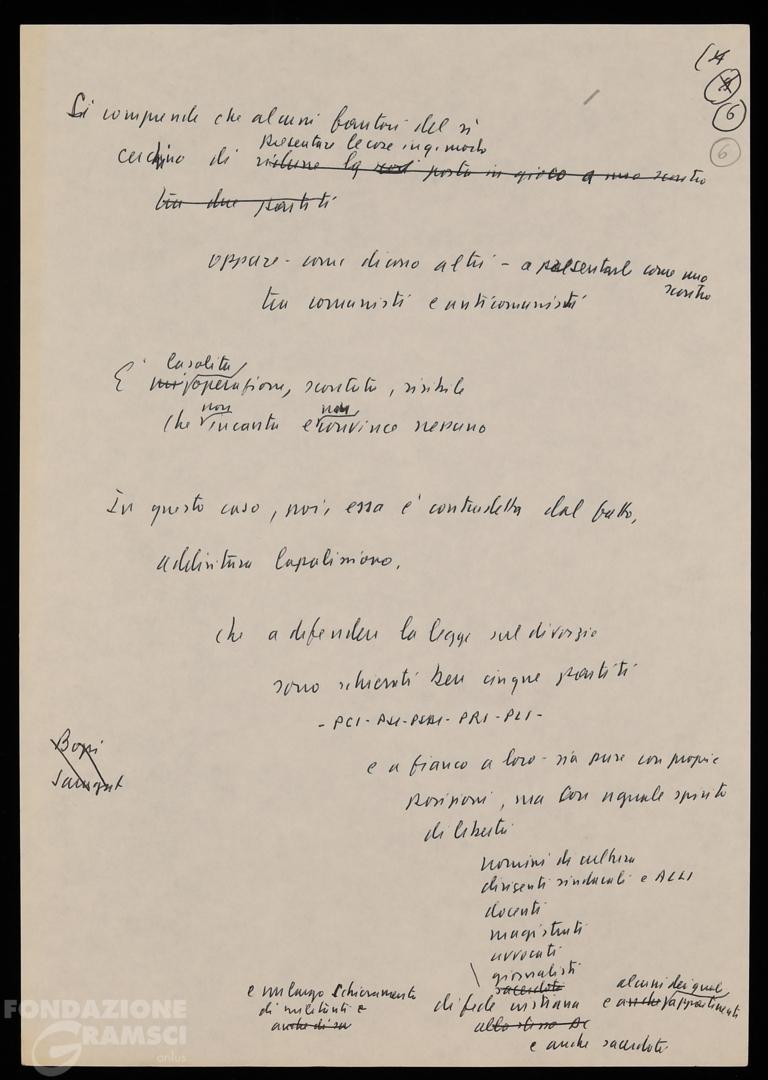 (4
8
6
6
Si comprende che alcuni fautori del sì
presentare le cose in q. modo
cerchino di ridurre la posta in gioco a uno scontro
tra due partiti
oppure - come dicono altri - a presentarle come uno
scontro
tra comunisti e anticomunisti
la solita
E' operazione, scontata, risibile
non non
che incanta e convince nessuno
In questo caso, poi, essa è contraddetta dal fatto,
addirittura lapalissiano,
che a difendere la legge sul divorzio
sono schierati ben cinque partiti
- PCI - PSI - PSDI - PRI - PLI -
Bozzi
Saragat
e a fianco a loro - sia pure con proprie
posizioni, ma con uguale spirito
di libertà
uomini di cultura
dirigenti sindacali e ACLI
docenti
magistrati
avvocati
giornalisti
sacerdoti
e un largo schieramento
di militanti e
anche di
di fede cristiana
alcuni dei quali
e anche appartenenti
allo stesso DC
e anche sacerdoti
FONDAZIONE
GRAMSCI
onlus